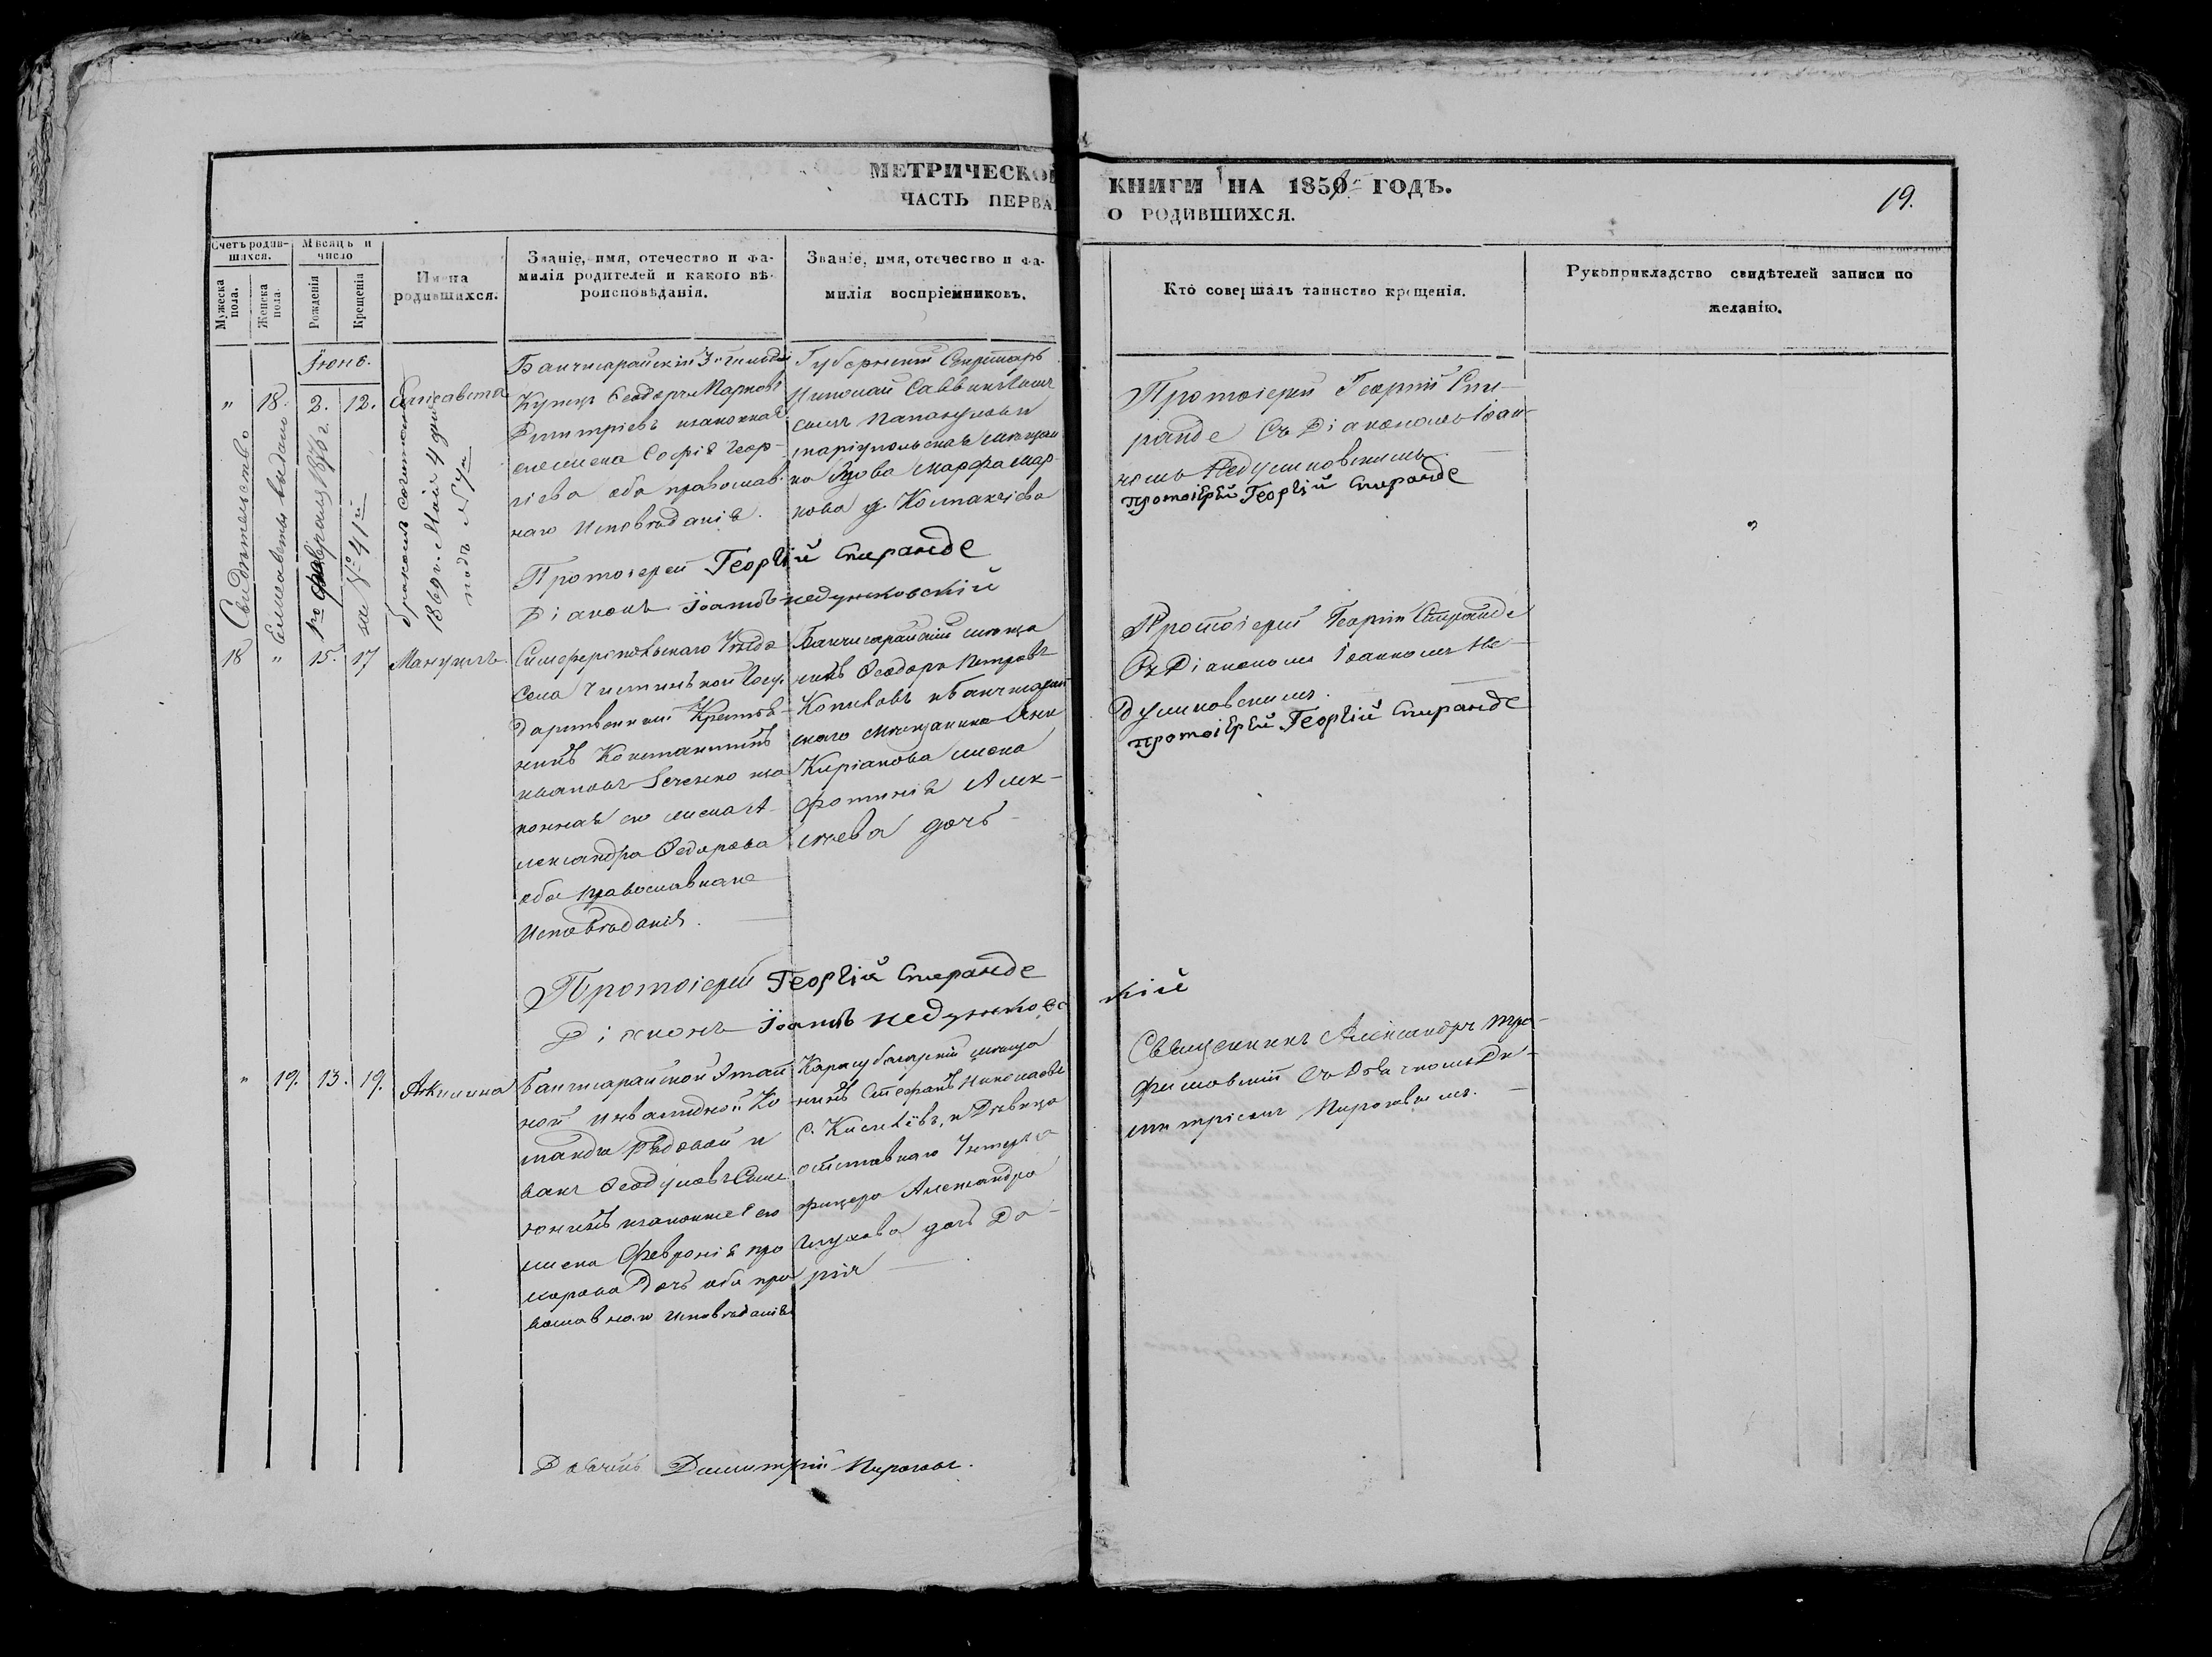 МЕТРИЧЕСКОЙ КНИГИ НА 185 ГОДЪ.
ЧАСТЬ ПЕРВА О РОДИВШИХСЯ.
19.
Счетъ родившихся.
Мужеска пола.
Женска пола.
Мѣсяцъ и число
Рожденія
Крещенія
Имена родившихся.
Званіе, имя, отечество и фамилія родителей и какого вѣроисповѣданія.
Званіе, имя, отечество и фамилія воспріемниковъ.
Кто совершалъ таинство крещенія.
Рукоприкладство свидѣтелей записи по желанію.
Іюнь.
" 18. 2. 12. Елисавета
Свидѣтельство
Елисаветы выдано
1го февраля
за № 41й
бракомъ сочетана
1869 г. Маія 4 дня
подъ №
Бахчисарайскій 3й гильдіи
Купецъ Ѳеодоръ Марковъ
Димитріевъ и законная
его жена Софія Геор-
гіева оба православ-
наго исповѣданія.
Губернскій Секретарь
Николай Саввинъ
сынъ и
маріупольская мѣщан
ка Марфа Мар-
кова Колпакчіева
Протоіерей Георгій Спи-
ранде съ Діакономъ Іоан-
номъ Недзельковскимъ.
Протоіерей Георгій Спиранде
Протоіерей Георгій Спиранде
Діаконъ Іоаннъ
18 " 15. 17 Мануилъ.
Симферопольскаго Уѣзда
Села Чистинькой Госу-
дарственный Крестья-
нинъ Константинъ
Ивановъ и за
конная его жена А-
лександра Ѳедорова
оба православнаго
Исповѣданія.
Бахчисарайскій мѣща
нинъ Ѳеодоръ Петровъ
и Бахчисарай
скаго мѣщанина
Киріакова жена
Фотинія Алек-
сѣева дочь
Протоіерей Георгій Спиранде
Съ Діакономъ Іоанномъ Не-
Протоіерей Георгій Спиранде
Протоіерей Георгій Спиранде
Діаконъ Іоаннъ
кій
" 19. 13. 19. Акилина
Бахчисарайской Этап
ной инвалидной Ко
манды Рядовой И
ванъ Ѳеодуловъ
и законная его
жена Февронія Про
хорова дочь оба пра
вославнаго исповѣданія
Карасубазарскій мѣща
нинъ Стефанъ Николаевъ
и Дѣвица
отставнаго Унтеръ о
фицера Александра
Глухова дочь Да-
рія
Священникъ Александръ Тро-
фимовскій съ Дьячкомъ Ди-
митріемъ Пироговымъ.
Дьячекъ Димитрій Пироговъ.